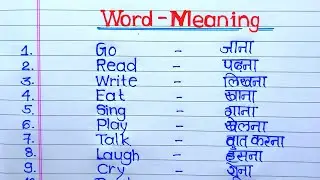 Word-Meaning
1. Go - जाना
2. Read - पढ़ना
3. Write - लिखना
4. Eat - खाना
5. Sing - गाना
6. Play - खेलना
7. Talk - बात करना
8. Laugh - हँसना
9. Cry - रोना